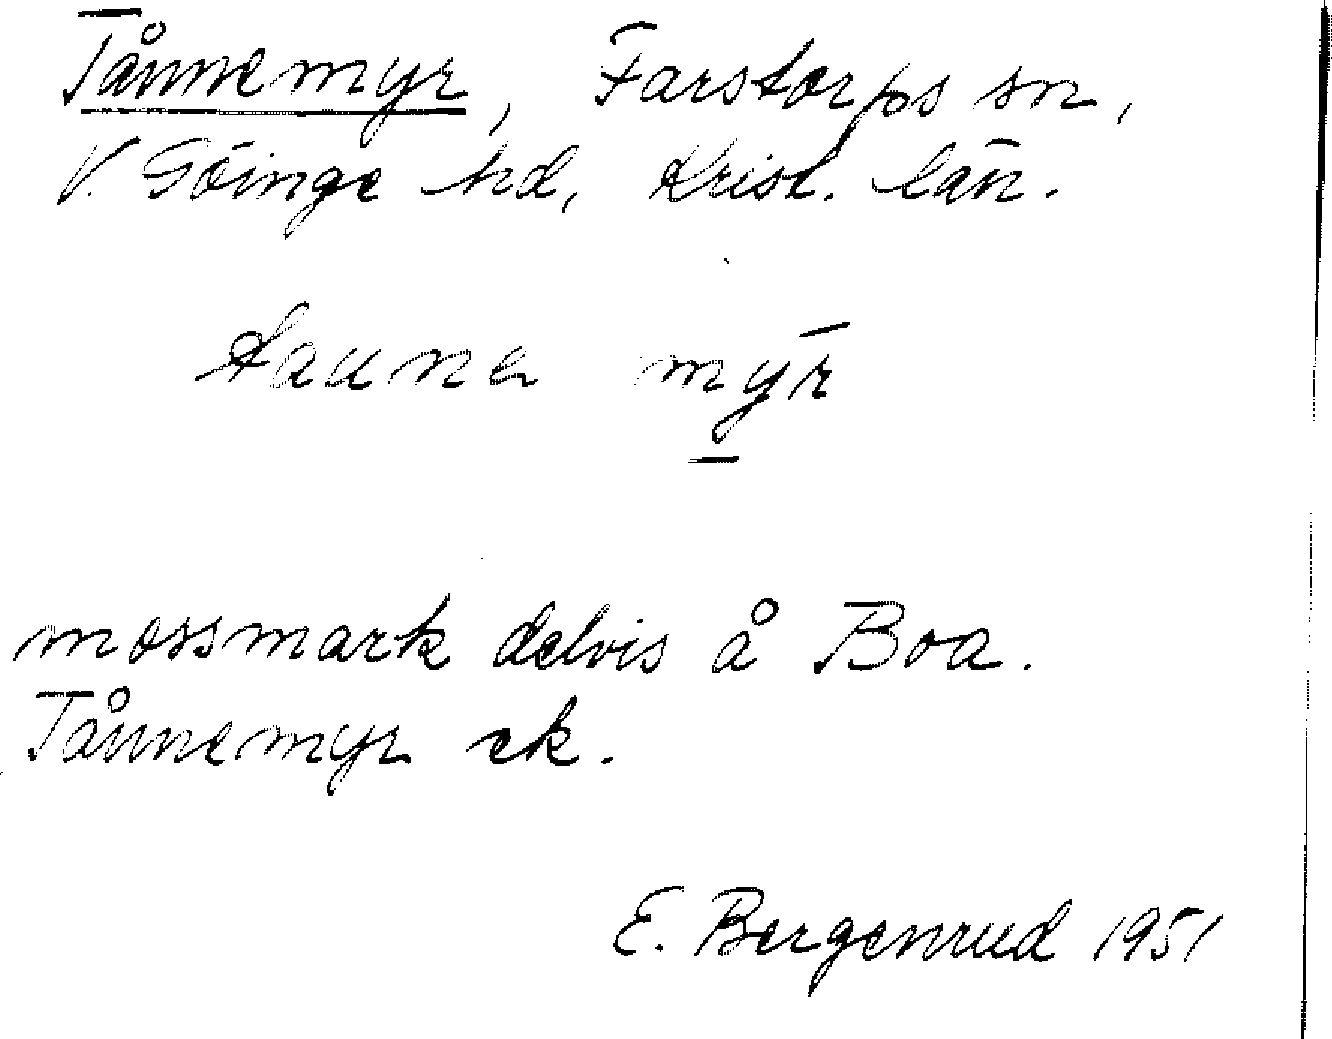 Tånnemyr, Farstorps sn,
V. Göinge hd, Krist. län.
tauna mȳr
mossmark delvis å Boa.
Tånnemyr ek.
E. Bergenrud 1951